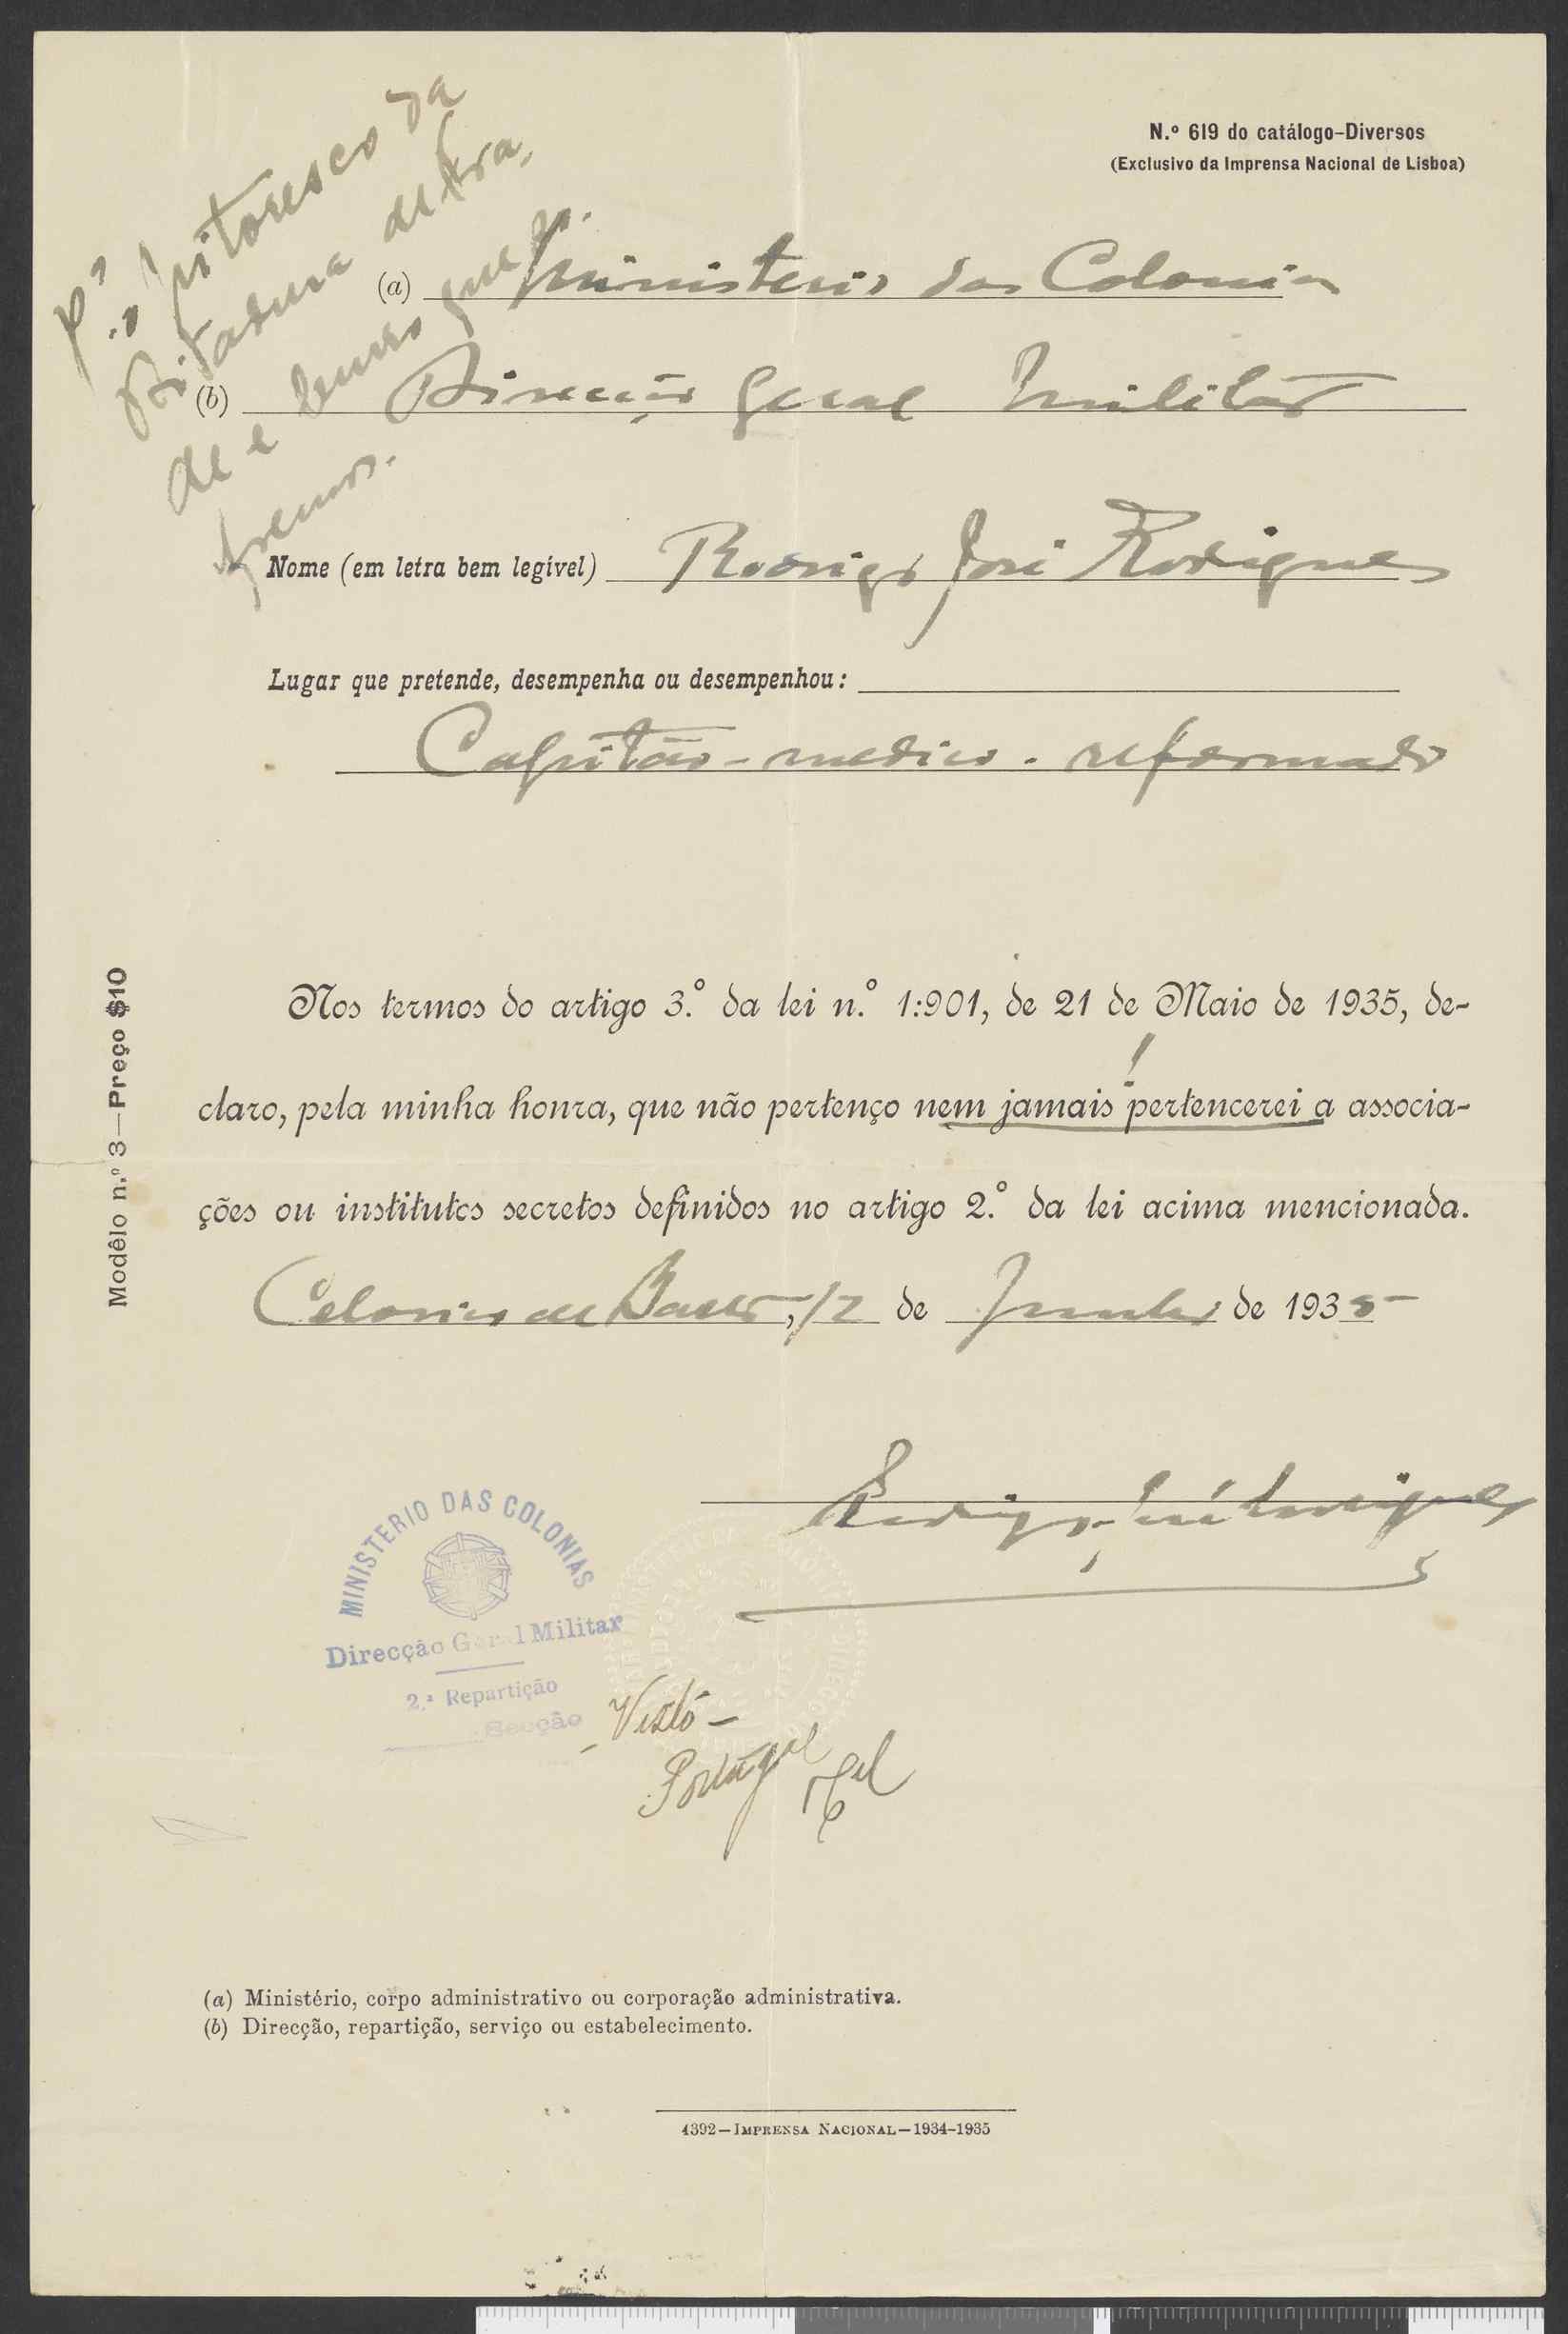 N.º 619 do catálogo-Diversos
(Exclusivo da Imprensa Nacional de Lisboa)
Pª o pitoresco da
Ditadura
de e
(a) Ministerio das Colonias
(b) Direcção Geral Militar
Nome (em letra bem legível) Rodrigo José Rodrigues
Lugar que pretende, desempenha ou desempenhou:
Capitão-medico-reformado
Modêlo n.º 3—Preço $10
Nos termos do artigo 3.º da lei n.º 1:901, de 21 de Maio de 1935, de-
!
claro, pela minha honra, que não pertenço nem jamais pertencerei a associa-
ções ou institutos secretos definidos no artigo 2.º da lei acima mencionada.
Celorico de Basto, 12 de Junho de 1935
Rodrigo José Rodrigues
MINISTERIO DAS COLONIAS
Direcção Geral Militar
2.ª Repartição
Secção
Visto
Portugal
(a) Ministério, corpo administrativo ou corporação administrativa.
(b) Direcção, repartição, serviço ou estabelecimento.
4392—IMPRENSA NACIONAL—1934-1935